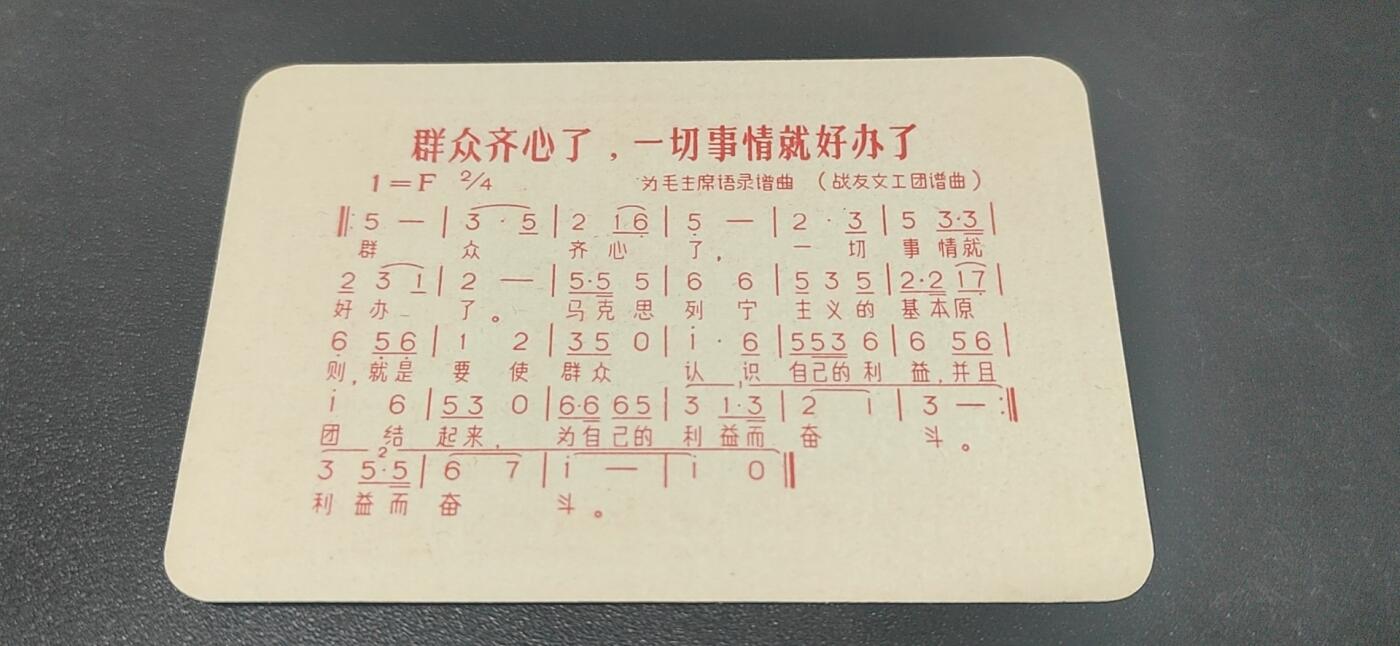 群众齐心了，一切事情就好办了
1＝F 2/4 为毛主席语录谱曲 （战友文工团谱曲）
‖: 5 — | 3 · 5 | 2 1 6 | 5 — | 2 · 3 | 5 3·3 |
群 众 齐 心 了， 一 切 事 情就
2 3 1 | 2 — | 5·5 5 | 6 6 | 5 3 5 | 2·2 1 7 |
好 办 了。 马克思 列 宁 主义的 基本原
6 5 6 | 1 2 | 3 5 0 | i · 6 | 5 5 3 6 | 6 5 6 |
则，就是 要 使 群众 认 识 自己的 利 益，并且
i 6 | 5 3 0 | 6·6 6 5 | 3 1·3 | 2 1 | 3 — :‖
团 结 起来， 为自己的 利 益而 奋 斗。
2
3 5·5 | 6 7 | i — | i 0 ‖
利 益而 奋 斗。